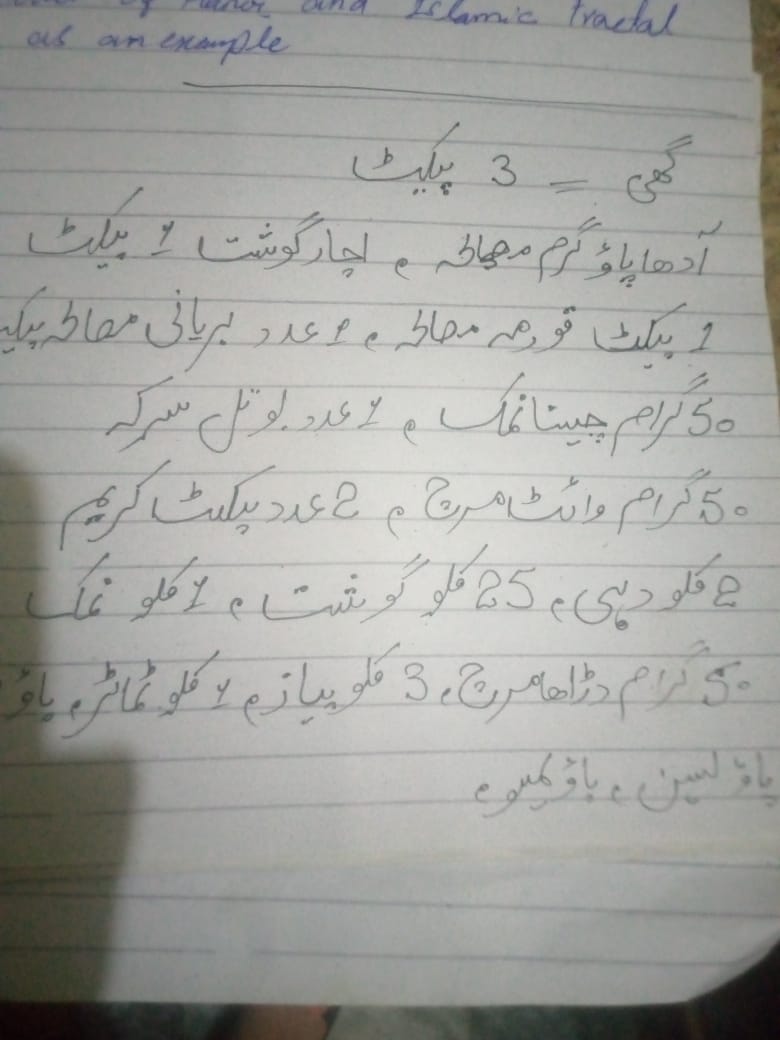 and Islamic fractal
as an example
گھی = 3 پیکٹ
آدھا پاؤ گرم مصالحہ ، اچار گوشت 1 پیکٹ
1 پیکٹ قورمہ مصالحہ ، 1 عدد بریانی مصالحہ
50 گرام چینا نمک ، 1 عدد بوتل سرکہ
50 گرام وائٹ مرچ ، 2 عدد پیکٹ کریم
2 کلو دہی ، 25 کلو گوشت ، 1 کلو نمک
50 گرام دڑاھا مرچ ، 3 کلو پیاز ، 1 کلو ٹماٹر ، پاؤ
پاؤ لسین ، پاؤ لیمو ،